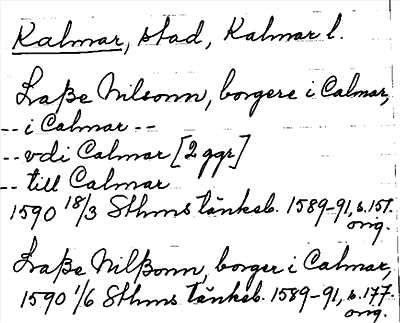 Kalmar, stad, Kalmar l.
Laße Nilsonn, borgere i Calmar,
-- i Calmar --
-- vdi Calmar [2 ggr]
-- till Calmar
1590 18/3 Sthms tänkeb. 1589-91, s. 151.
orig.
Laße Nilßonn, borger i Calmar,
1590 1/6 Sthms tänkeb. 1589-91, s. 177.
orig.